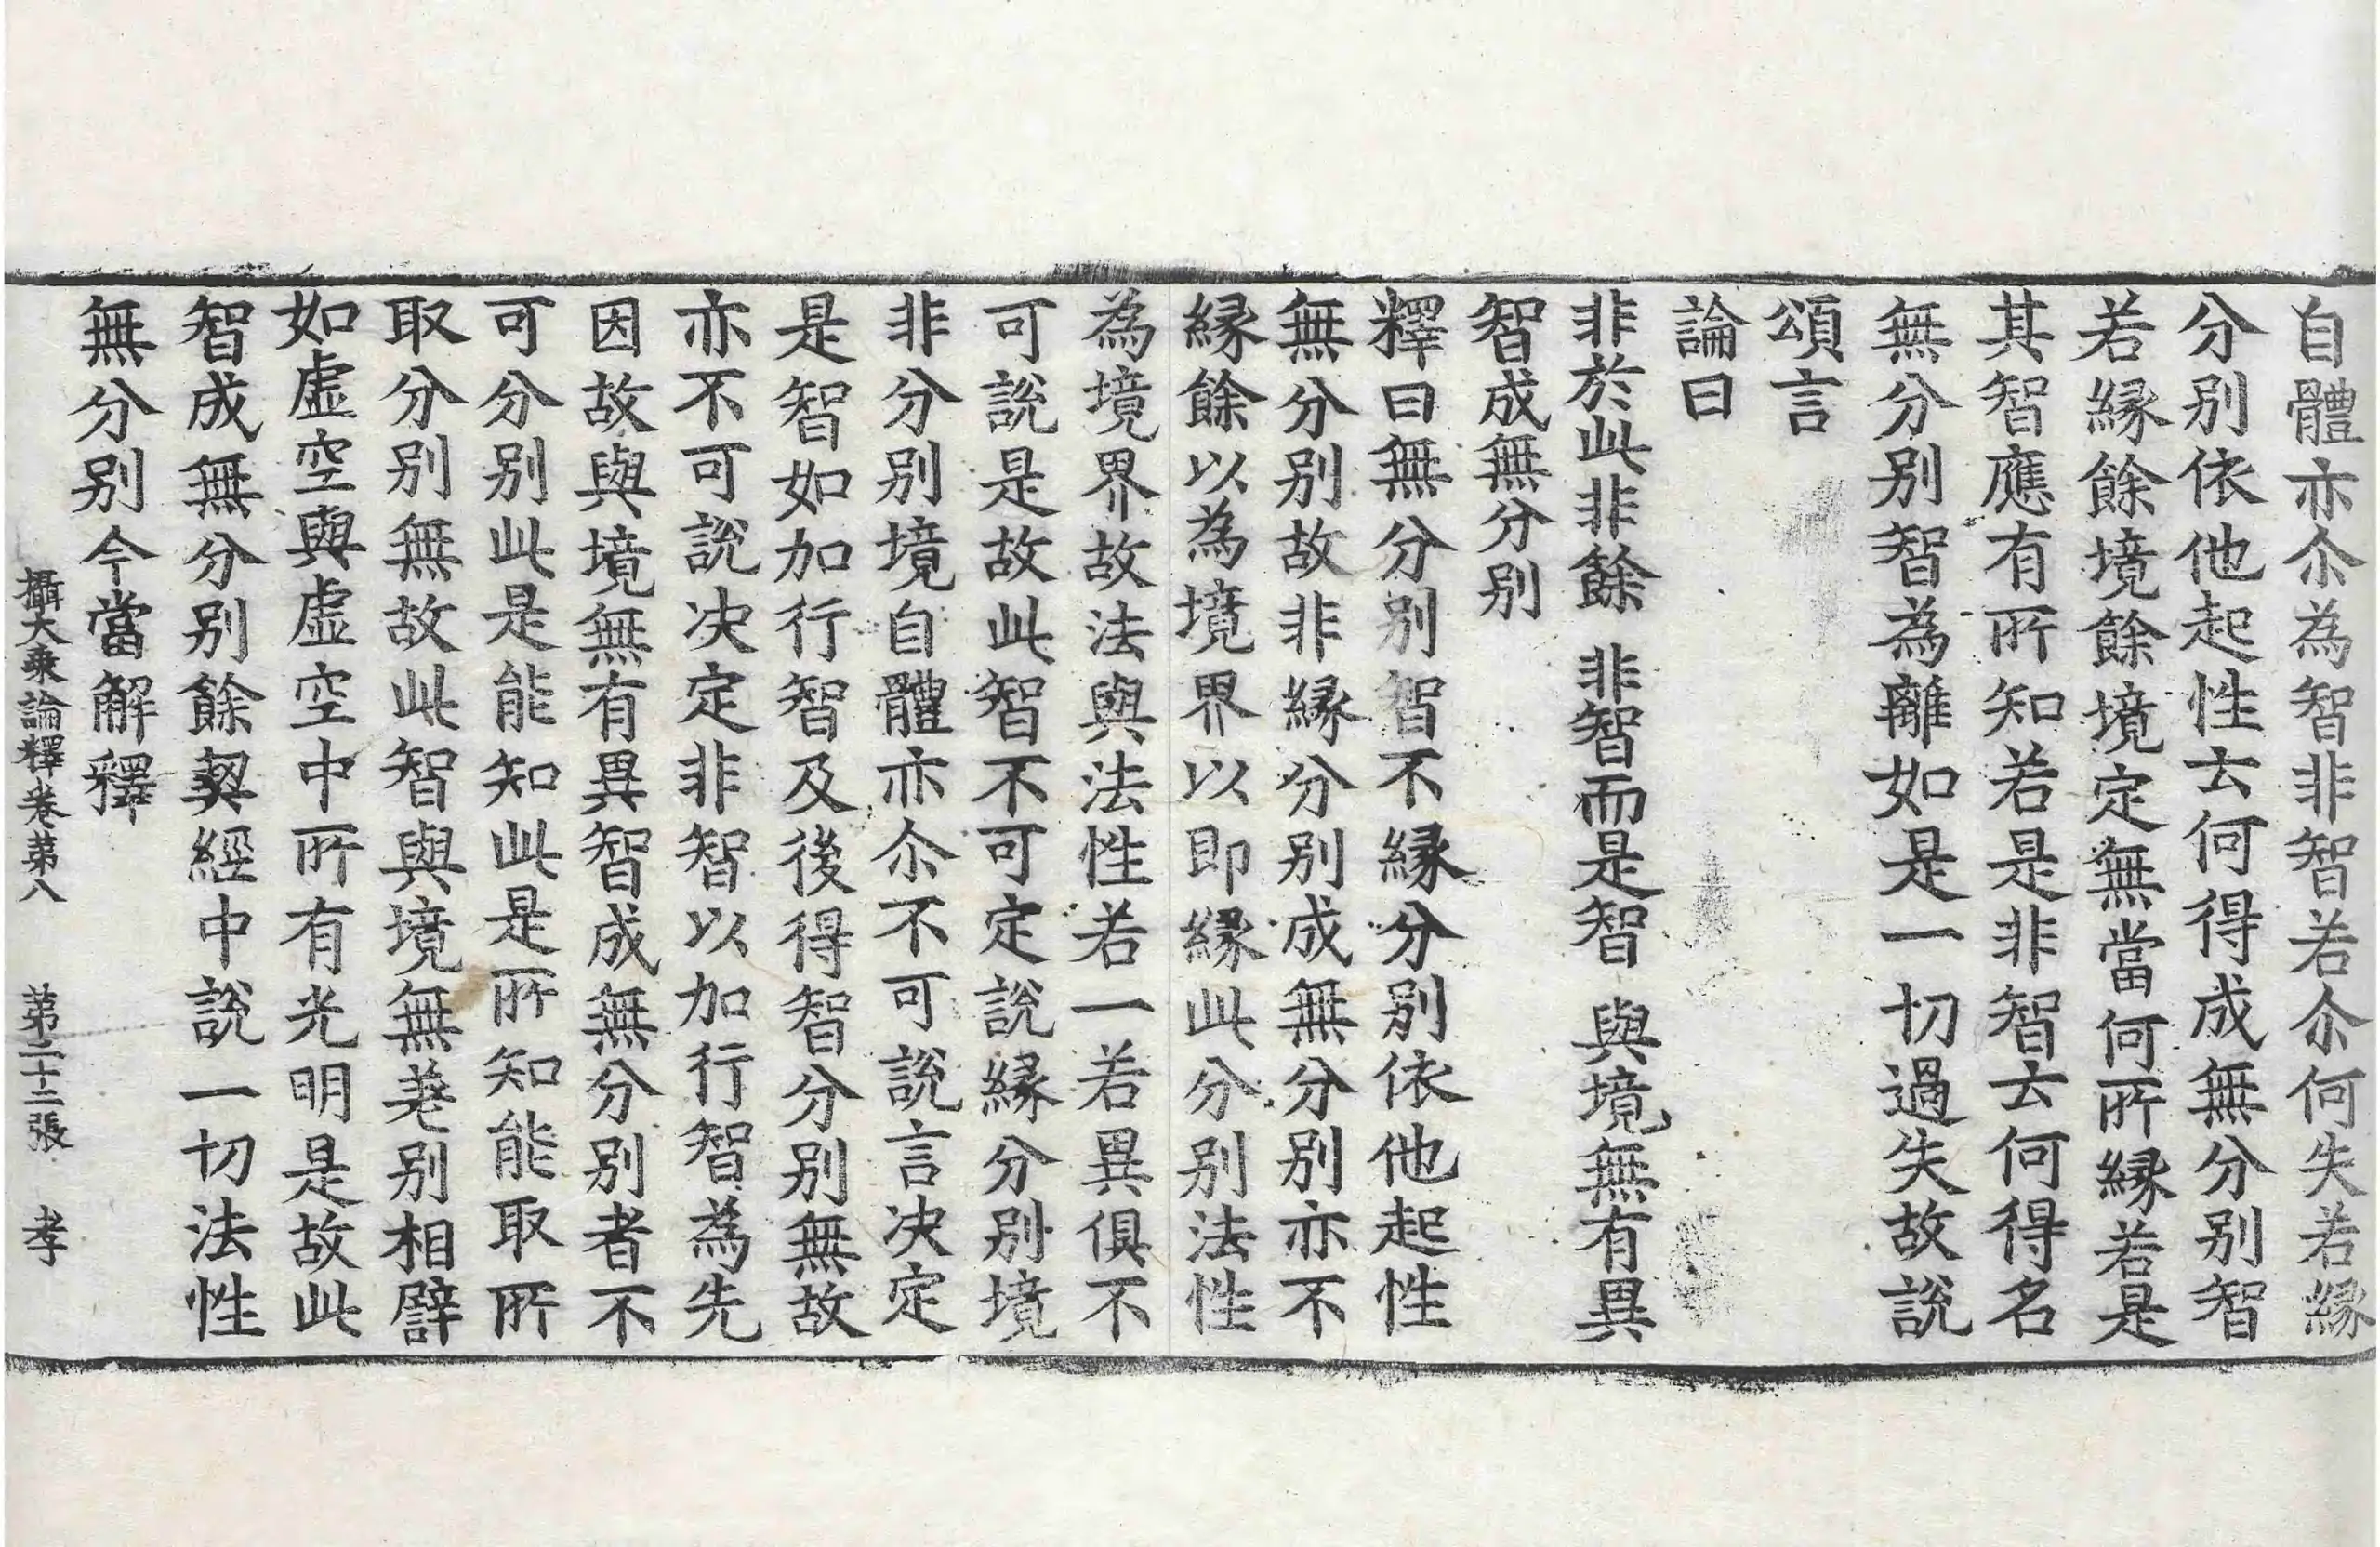 自體亦尒為智非智若尒何失若縁
分别依他起性去何得成無分别智
若縁餘境餘境定無當何所縁若是
其智應有所知若是非智去何得名
無分别智為離如是一切過失故說
頌言
論曰
非於此非餘　非智而是智　與境無有異
智成無分别
釋曰無分别智不縁分别依他起性
無分别故非縁分别成無分别亦不
縁餘以為境界以即縁此分别法性
為境界故法與法性若一若異俱不
可說是故此智不可定說縁分别境
非分别境自體亦尒不可說言决定
是智如加行智及後得智分别無故
亦不可說决定非智以加行智為先
因故與境無有異智成無分别者不
可分别此是能知此是所知能取所
取分别無故此智與境無差别相譬
如虛空與虛空中所有光明是故此
智成無分别餘契經中說一切法性
無分别今當解釋
攝大乘論釋卷第八　第二十二張　孝